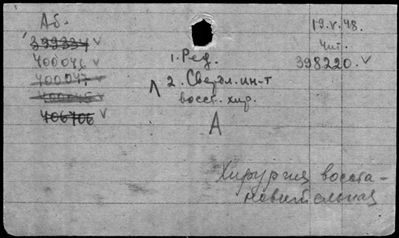 Аб.
399334 ✓
400046 ✓
400047 ✓
400045 ✓
406706 ✓
1. Ред.
2. Свердл. ин-т
восст. хир.
А
19.V.48.
Чит.
398220. ✓
Хирургия восста-
новительная